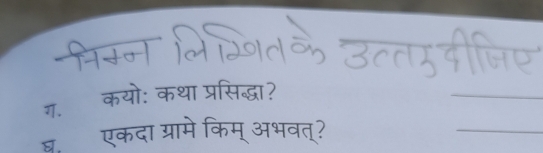 निम्न लिखित के उत्तर दीजिए
ग. कयोः कथा प्रसिद्धा?
घ. एकदा ग्रामे किम् अभवत्?